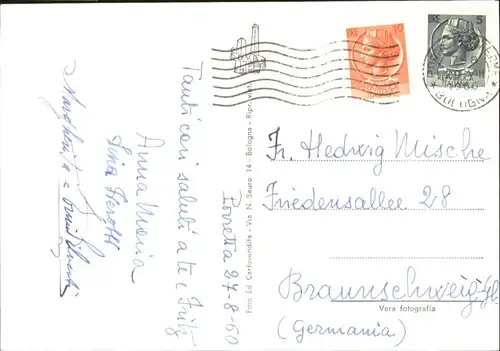 Porretta 27-8-60
Tanti cari saluti a te e Fritz
Anna Maria
Margherita e
Foto Ed. Cartovendita - Via N. Sauro 14 - Bologna - Ripr. Viet.
10
5
BOLOGNA
Fr. Hedwig Mische
Friedensallee 28
Braunschweig
Vera fotografia
(Germania)